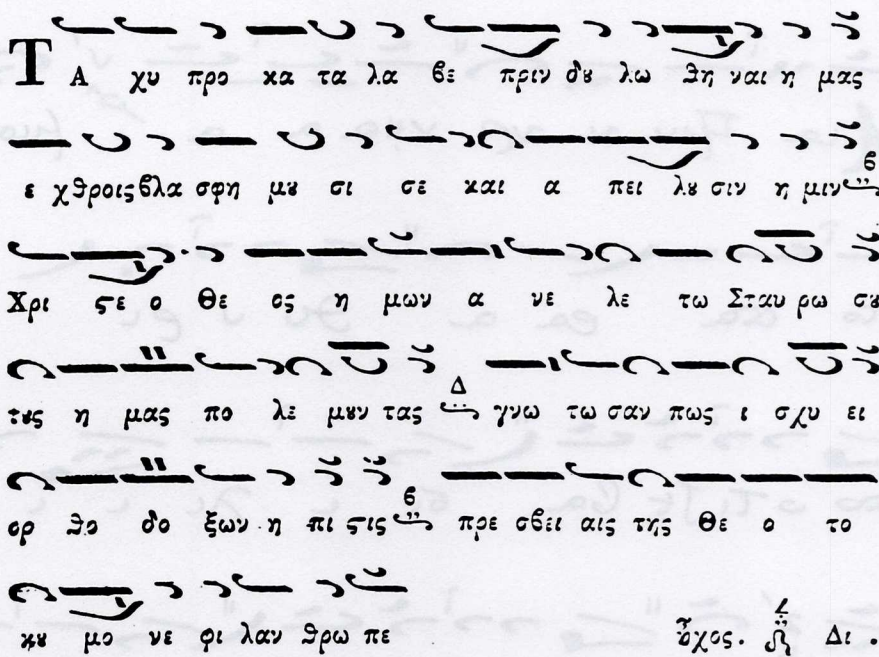 ΤΑ χυ προ κα τα λα βε πριν δȣ λω θη ναι η μας
ε χθροις βλα σφη μȣ σι σε και α πει λȣ σιν η μιν β
Χρι ϛε ο Θε ος η μων α νε λε τω Σταυ ρω σȣ
τȣς η μας πο λε μȣν τας Δ γνω τω σαν πως ι σχυ ει
ορ θο δο ξων η πι ϛις β πρε σβει αις της Θε ο το
κȣ μο νε φι λαν θρω πε ἦχος. Δι .